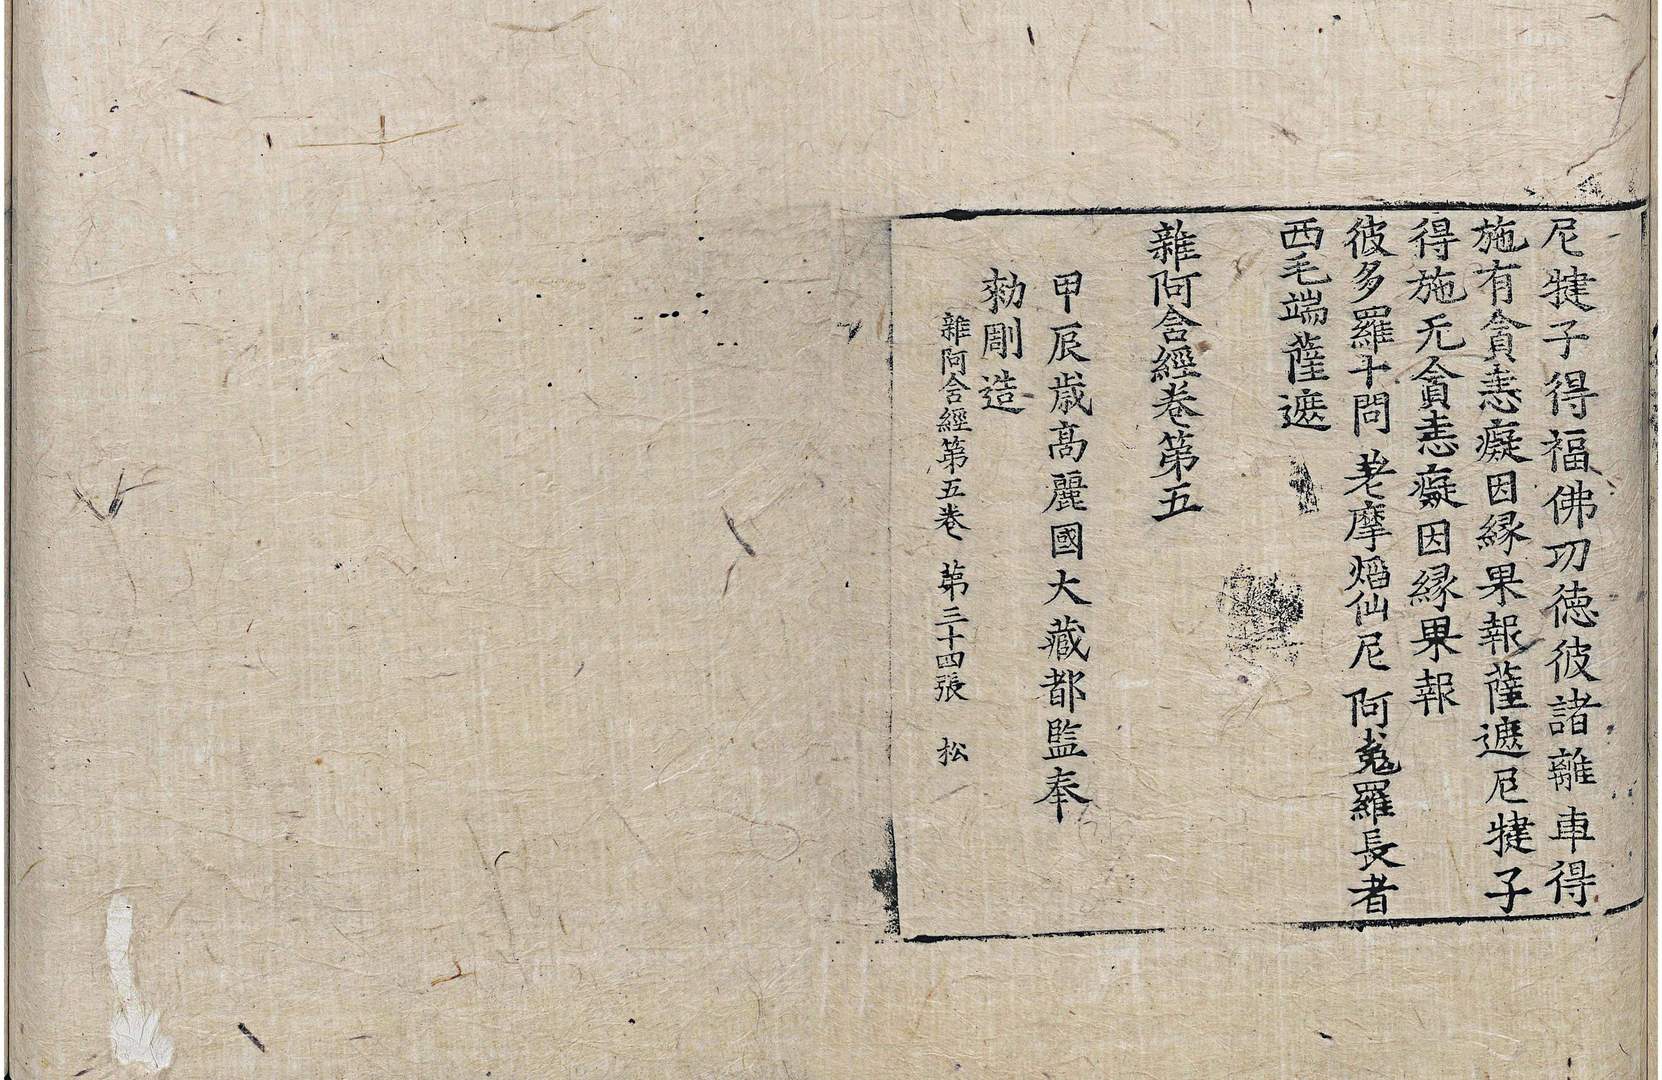 尼犍子得福佛功徳彼諸離車得
施有貪恚癡因縁果報薩遮尼犍子
得施无貪恚癡因縁果報
彼多羅十問 差摩焰仙尼 阿㝹羅長者
西毛端薩遮
雜阿含經卷第五
甲辰歳高麗國大藏都監奉
勑彫造
雜阿含經第五卷 第三十四張 松